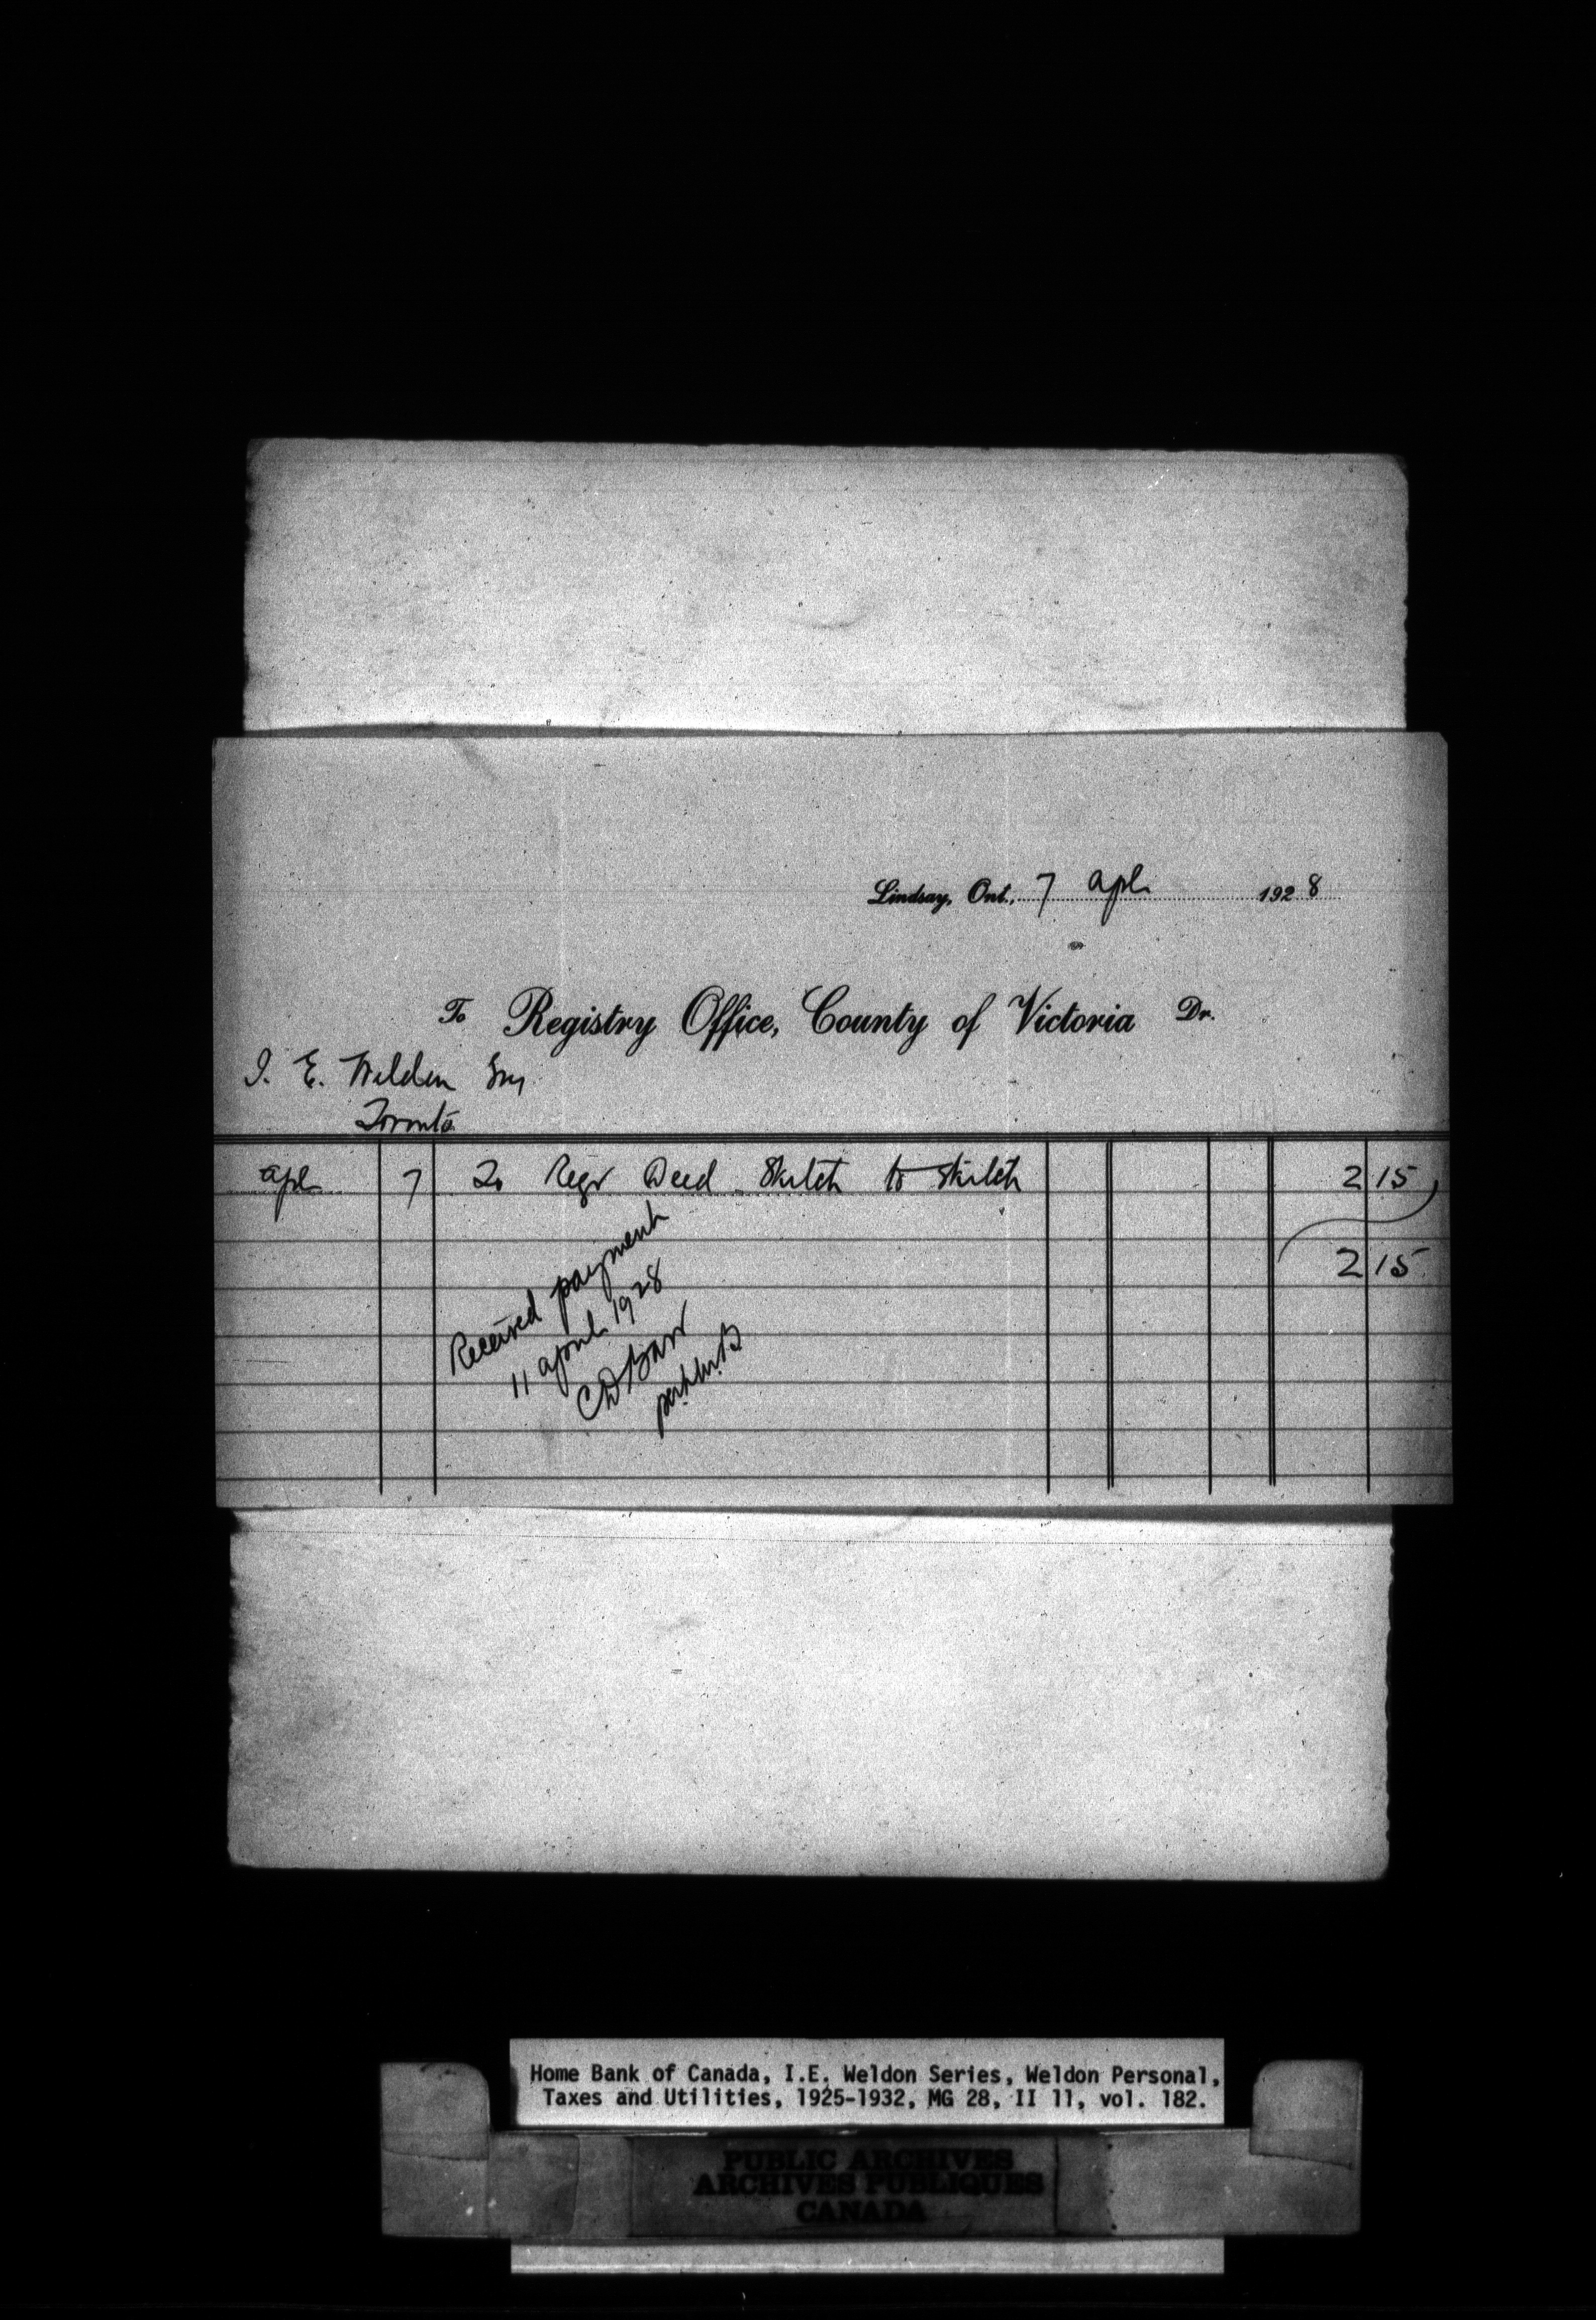 Lindsay, Ont., 7 Apl 1928
To Registry Office, County of Victoria Dr.
I. E. Weldon Esq
Toronto
Apl 7 To Regr Deed Skitch to Skitch 2 15
2 15
Received payment
11 April 1928
CD Barr
Home Bank of Canada, I.E. Weldon Series, Weldon Personal,
Taxes and Utilities, 1925-1932, MG 28, II 11, vol. 182.
PUBLIC ARCHIVES
ARCHIVES PUBLIQUES
CANADA